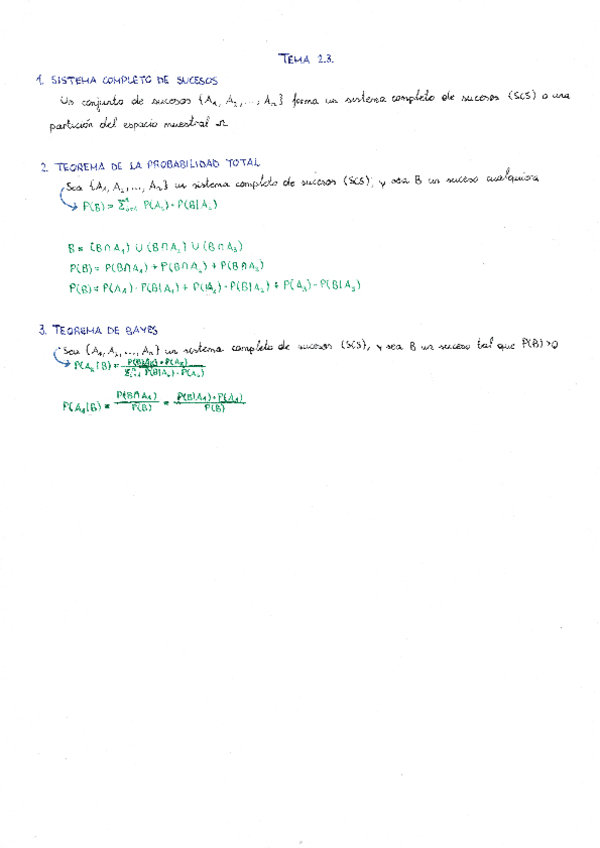 TEMA 2.3.
1. SISTEMA COMPLETO DE SUCESOS
Un conjunto de sucesos {A₁, A₂, ..., Aₙ} forma un sistema completo de sucesos (SCS) o una
partición del espacio muestral Ω
2. TEOREMA DE LA PROBABILIDAD TOTAL
Sea {A₁, A₂, ..., Aₙ} un sistema completo de sucesos (SCS), y sea B un suceso cualquiera
P(B) = Σⁿᵢ₌₁ P(Aᵢ) · P(B|Aᵢ)
B = (B∩A₁) ∪ (B∩A₂) ∪ (B∩A₃)
P(B) = P(B∩A₁) + P(B∩A₂) + P(B∩A₃)
P(B) = P(A₁) · P(B|A₁) + P(A₂) · P(B|A₂) + P(A₃) · P(B|A₃)
3. TEOREMA DE BAYES
Sea {A₁, A₂, ..., Aₙ} un sistema completo de sucesos (SCS), y sea B un suceso tal que P(B)>0
P(Aᵢ|B) = P(B|Aᵢ) · P(Aᵢ) / Σⁿᵢ₌₁ P(B|Aᵢ) · P(Aᵢ)
P(A₁|B) = P(B∩A₁) / P(B) = P(B|A₁) · P(A₁) / P(B)